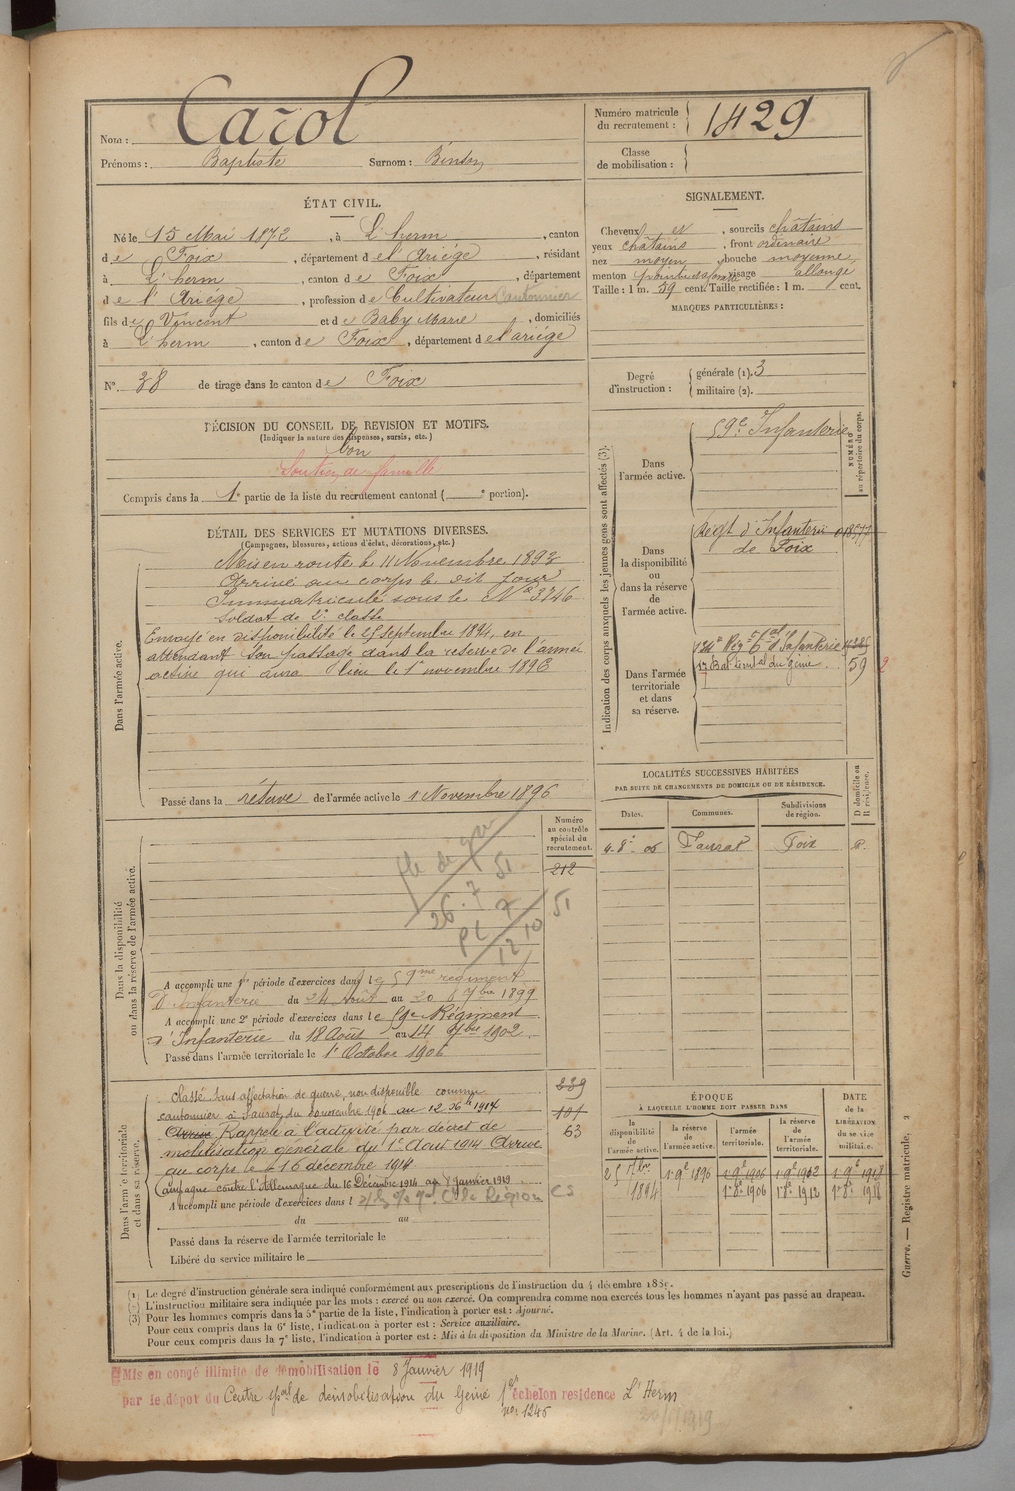 Nom : Carol
Prénoms : Baptiste Surnom : 
Numéro matricule du recrutement : 1429
Classe de mobilisation :
ÉTAT CIVIL.
Né le 15 Mai 1872, à L'herm, canton
de Foix, département de l'Ariége, résidant
à L'herm, canton de Foix, département
de l'Ariége, profession de Cultivateur Cantonnier
fils de Vincent et de Baby Marie, domiciliés
à L'herm, canton de Foix, département de l'ariége
N° 38 de tirage dans le canton de Foix
SIGNALEMENT.
Cheveux et, sourcils châtains
yeux châtains, front ordinaire
nez moyen, bouche moyenne,
menton pointu visage allongé
Taille : 1 m. 59 cent. Taille rectifiée : 1 m. cent.
MARQUES PARTICULIÈRES :
Degré d'instruction : générale (1). 3
militaire (2).
DÉCISION DU CONSEIL DE REVISION ET MOTIFS.
(Indiquer la nature des dispenses, sursis, etc.)
bon
Soutien de famille
Compris dans la 1e partie de la liste du recrutement cantonal ( e portion).
DÉTAIL DES SERVICES ET MUTATIONS DIVERSES.
(Campagnes, blessures, actions d'éclat, décorations, etc.)
Dans l'armée active.
Mis en route le 11 Novembre 1893
Arrivé au corps le dit jour
Immatriculé sous le N° 3746
Soldat de 2e classe
Envoyé en disponibilité le 25 septembre 1894, en
attendant son passage dans la réserve de l'armée
active qui aura lieu le 1er novembre 1896
Passé dans la réserve de l'armée active le 1 Novembre 1896
Indication des corps auxquels les jeunes gens sont affectés (3).
NUMÉRO au répertoire du corps.
Dans l'armée active.
59e Infanterie
Dans la disponibilité ou dans la réserve de l'armée active.
Régt d'Infanterie
de Foix
Dans l'armée territoriale et dans sa réserve.
134e Régt tal d'Infanterie
17 Bat territal du génie 59 2
LOCALITÉS SUCCESSIVES HABITÉES
PAR SUITE DE CHANGEMENTS DE DOMICILE OU DE RÉSIDENCE.
Dates. Communes. Subdivisions de région. D domicile ou R résidence.
4.8e 06 Saurat Foix R.
Dans la disponibilité ou dans la réserve de l'armée active.
Numéro au contrôle spécial du recrutement.
212
26.7 51
12 10 51
A accompli une 1re période d'exercices dans le 59me régiment
D'infanterie du 24 août au 20 7bre 1899
A accompli une 2e période d'exercices dans le 59e Régiment
d'Infanterie du 18 Août au 14 7bre 1902.
Passé dans l'armée territoriale le 1er Octobre 1906
Dans l'armée territoriale et dans sa réserve.
Classé sans affectation de guerre, non disponible comme
cantonnier à Saurat du 20 novembre 1906 au 12 Xbre 1914
Arrivé Rappelé à l'activité par décret de
mobilisation générale du 1er Aout 1914 Arrivé
au corps le 16 décembre 1914
Campagne contre l'Allemagne du 16 Décembre 1914 au 7 Janvier 1919
239
101
63
A accompli une période d'exercices dans l
du au
Passé dans la réserve de l'armée territoriale le
Libéré du service militaire le
ÉPOQUE
À LAQUELLE L'HOMME DOIT PASSER DANS
la disponibilité de l'armée active. la réserve de l'armée active. l'armée territoriale. la réserve de l'armée territoriale. DATE de la LIBÉRATION du service militaire.
25 7bre 1894
1 9e 1896 1 9e 1906 1 9e 1912 1 9e 1918
1er 8e 1906 1er 8e 1912 1er 8e 1918
(1) Le degré d'instruction générale sera indiqué conformément aux prescriptions de l'instruction du 4 décembre 1889.
(2) L'instruction militaire sera indiquée par les mots : exercé ou non exercé. On comprendra comme non exercés tous les hommes n'ayant pas passé au drapeau.
(3) Pour les hommes compris dans la 5e partie de la liste, l'indication à porter est : Ajourné.
Pour ceux compris dans la 6e liste, l'indication à porter est : Service auxiliaire.
Pour ceux compris dans la 7e liste, l'indication à porter est : Mis à la disposition du Ministre de la Marine. (Art. 4 de la loi.)
Guerre. — Registre matricule. 2
Mis en congé illimité de démobilisation le 8 Janvier 1919
par le dépôt du Centre spal de démobilisation du Génie 1er échelon residence L'Herm
no 1245